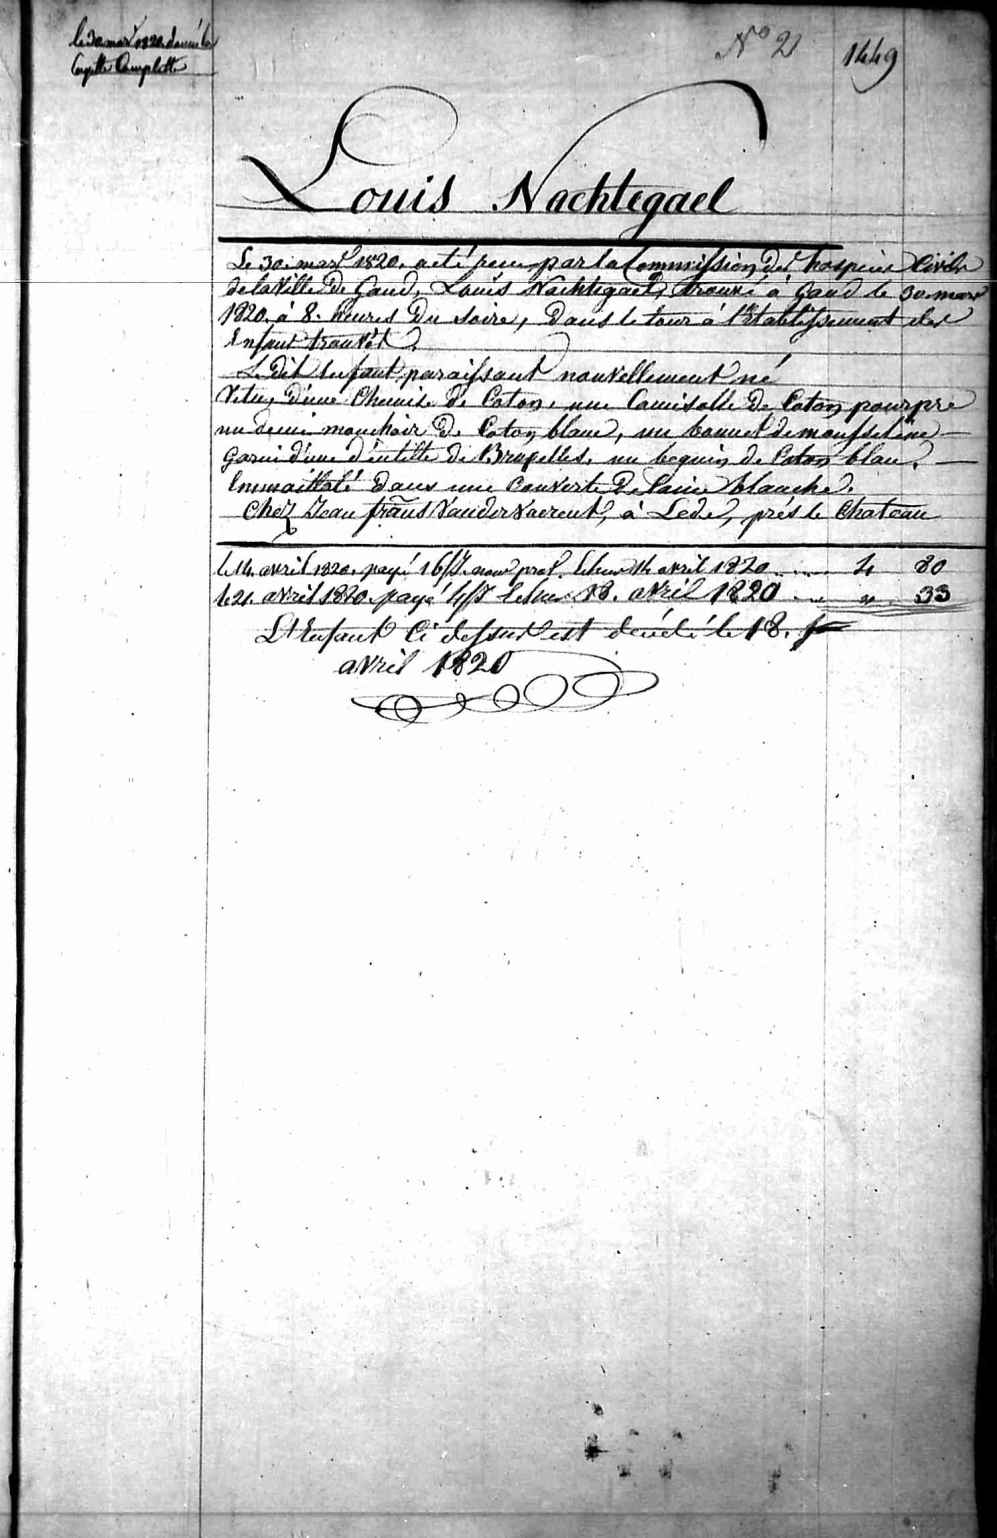 le 30 mars 1820 donné la
layette Complette
N° 2
1449
Louis Nachtegael
Le 30. mars 1820. a eté recu par la Commission des hospices Civils
de la Ville de Gand, Louis Nachtegael, trouvé à Gand le 30. mars
1820. à 8. heures du soire, dans le tour à l'Etablissement des
Enfant trouvés.
L. dit Enfant, paraissant nouvellement né
Vetu, d'une Chemise de Coton, une Camisolle de Coton pourpre
un demi mouchoir de Coton blanc, un bonnet de mousseline
garni d'une dentelle de Bruxelles, un béquin de Coton blan.
Emmailloté dans une Couverte de laine blanche.
Chez Jean frans Vandervaerent, à Lede, prés le Chateau
le 14. avril 1820. payé 16 14 avril 1820 .... 4 80
le 21. avril 1820. payé 4 18. avril 1820 ... " 33
Lt Enfant Ci dessus est décédé le 18.
avril 1820